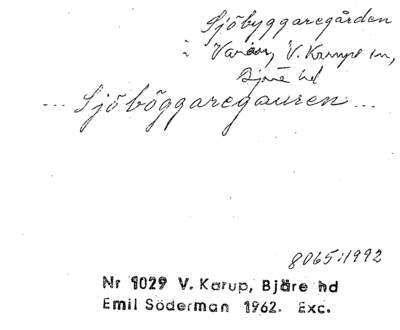 Sjöbyggaregården
i Varan, V. Karups sn,
Bjäre hd
... Sjöböggaregauren ...
8065:1992
Nr 1029 V. Karup, Bjäre hd
Emil Söderman 1962. Exc.